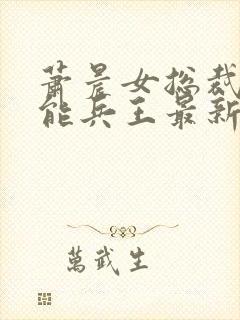 萧晨女总裁
能兵王最新
萬武生